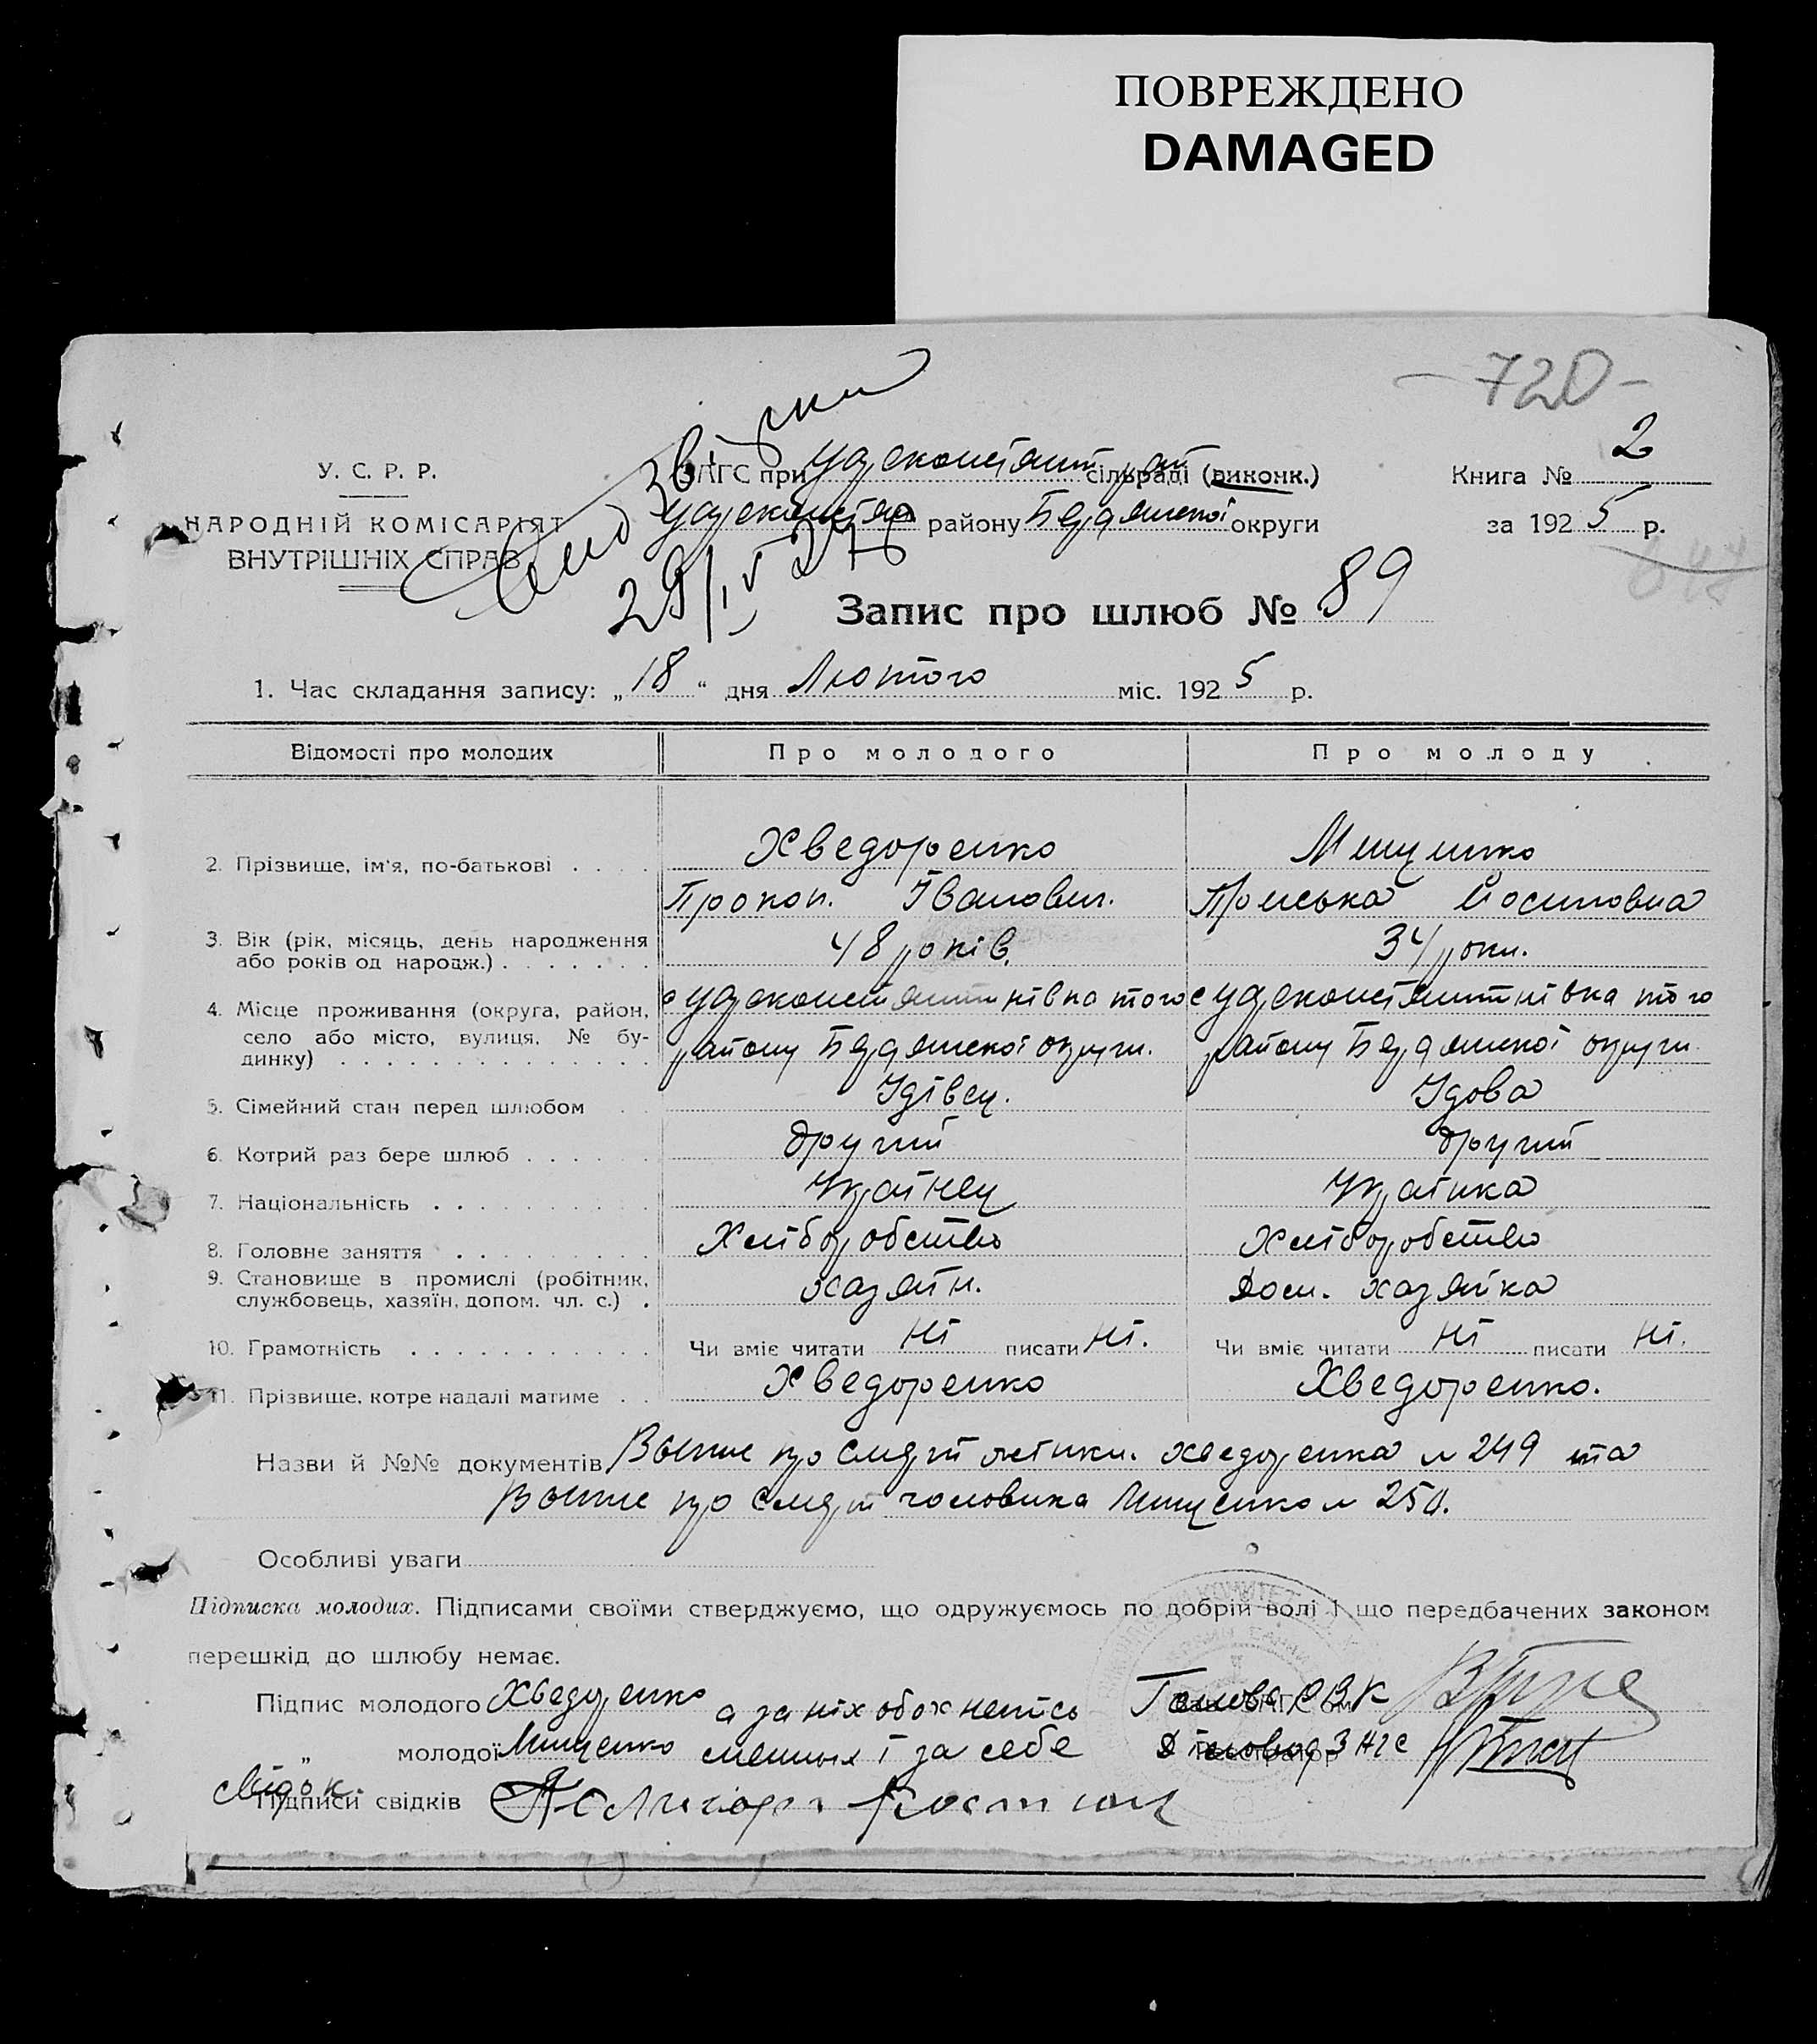 ПОВРЕЖДЕНО
DAMAGED
720
У. С. Р. Р.
НАРОДНІЙ КОМІСАРІЯТ
ВНУТРІШНІХ СПРАВ
ЗАГС при сільраді (виконк.)
району Бердянської округи
Книга № 2
за 1925 р.
Запис про шлюб № 89
1. Час складання запису: „18“ дня Лютого міс. 1925 р.
Відомості про молодих Про молодого Про молоду
2. Прізвище, ім'я, по-батькові . . . . Хведоренко Мищенко
Прокоп. Іванович. Пріська Йосиповна
3. Вік (рік, місяць, день народження або років од народж.) . . . . . . . 48 років. 34 роки.
4. Місце проживання (округа, район, село або місто, вулиця, № будинку) . . . . . . . . . . . . . . с Цареконстянтинівка того с Цареконстянтинівка того
району Бердянської округи. району Бердянської округи.
5. Сімейний стан перед шлюбом . Удівец. Удова
6. Котрий раз бере шлюб . . . . . . другий другий
7. Національність . . . . . . . . . . Українец Українка
8. Головне заняття . . . . . . . . . Хліборобство Хліборобство
9. Становище в промислі (робітник, службовець, хазяїн, допом. чл. с.) . хазяїн. Дом. хазяйка
10. Грамотність . . . . . . . . . . . Чи вміє читати ні писати ні. Чи вміє читати ні писати ні.
11. Прізвище, котре надалі матиме . . Хведоренко Хведоренко.
Назви й №№ документів про смерт жінки. Хведоренка № 249 та
про смерт чоловика Мищенко № 250.
Особливі уваги
Підписка молодих. Підписами своїми стверджуємо, що одружуємось по добрій волі і що передбачених законом
перешкід до шлюбу немає.
Підпис молодого Хведоренко а за ніх обох непісь Голова РВК
„ молодої Мищенко менних і за себе Діловод ЗАГС
свідок.
Підписи свідків